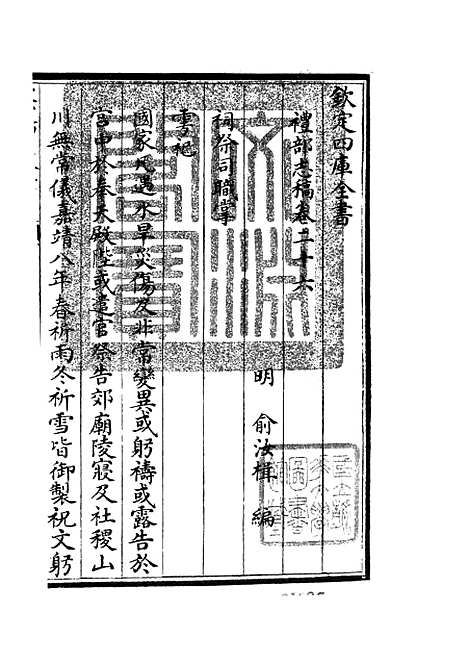 欽定四庫全書
禮部志稿卷二十六
明 俞汝楫 編
祠祭司職掌
雩祀
國家凡遇水旱災傷及非常變異或躬禱或露告於
宮中於奉天殿陛或遣官祭告郊廟陵寢及社稷山
川無常儀嘉靖八年春祈雨冬祈雪皆御製祝文躬